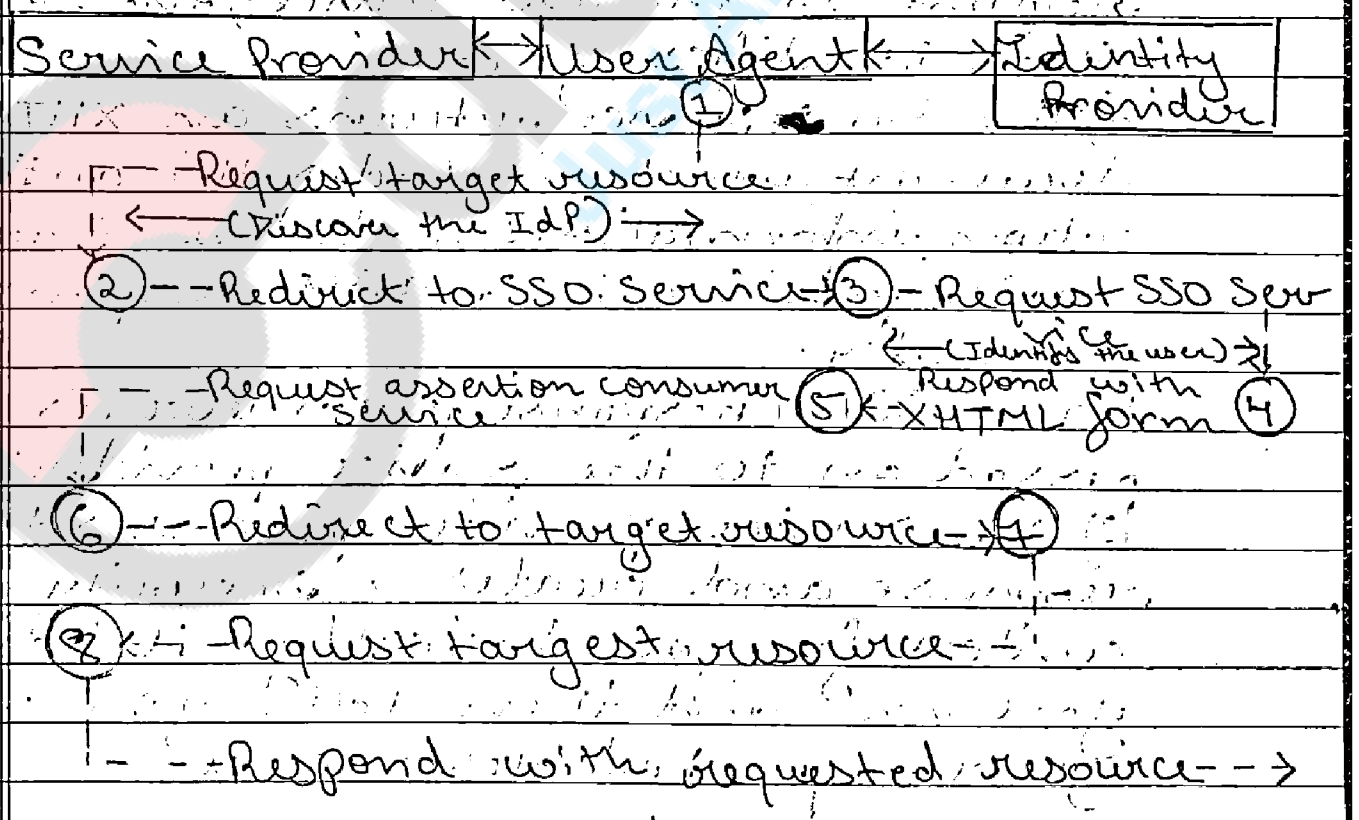 Service Provider User Agent Identity
Provider
1
Request target resource
(Discover the IdP)
2 Redirect to SSO Service 3 Request SSO Serv
ice
(Identify the user)
Request assertion consumer 5 Respond with
service XHTML form 4
6 Redirect to target resource 7
8 Request targest resource
Respond with requested resource